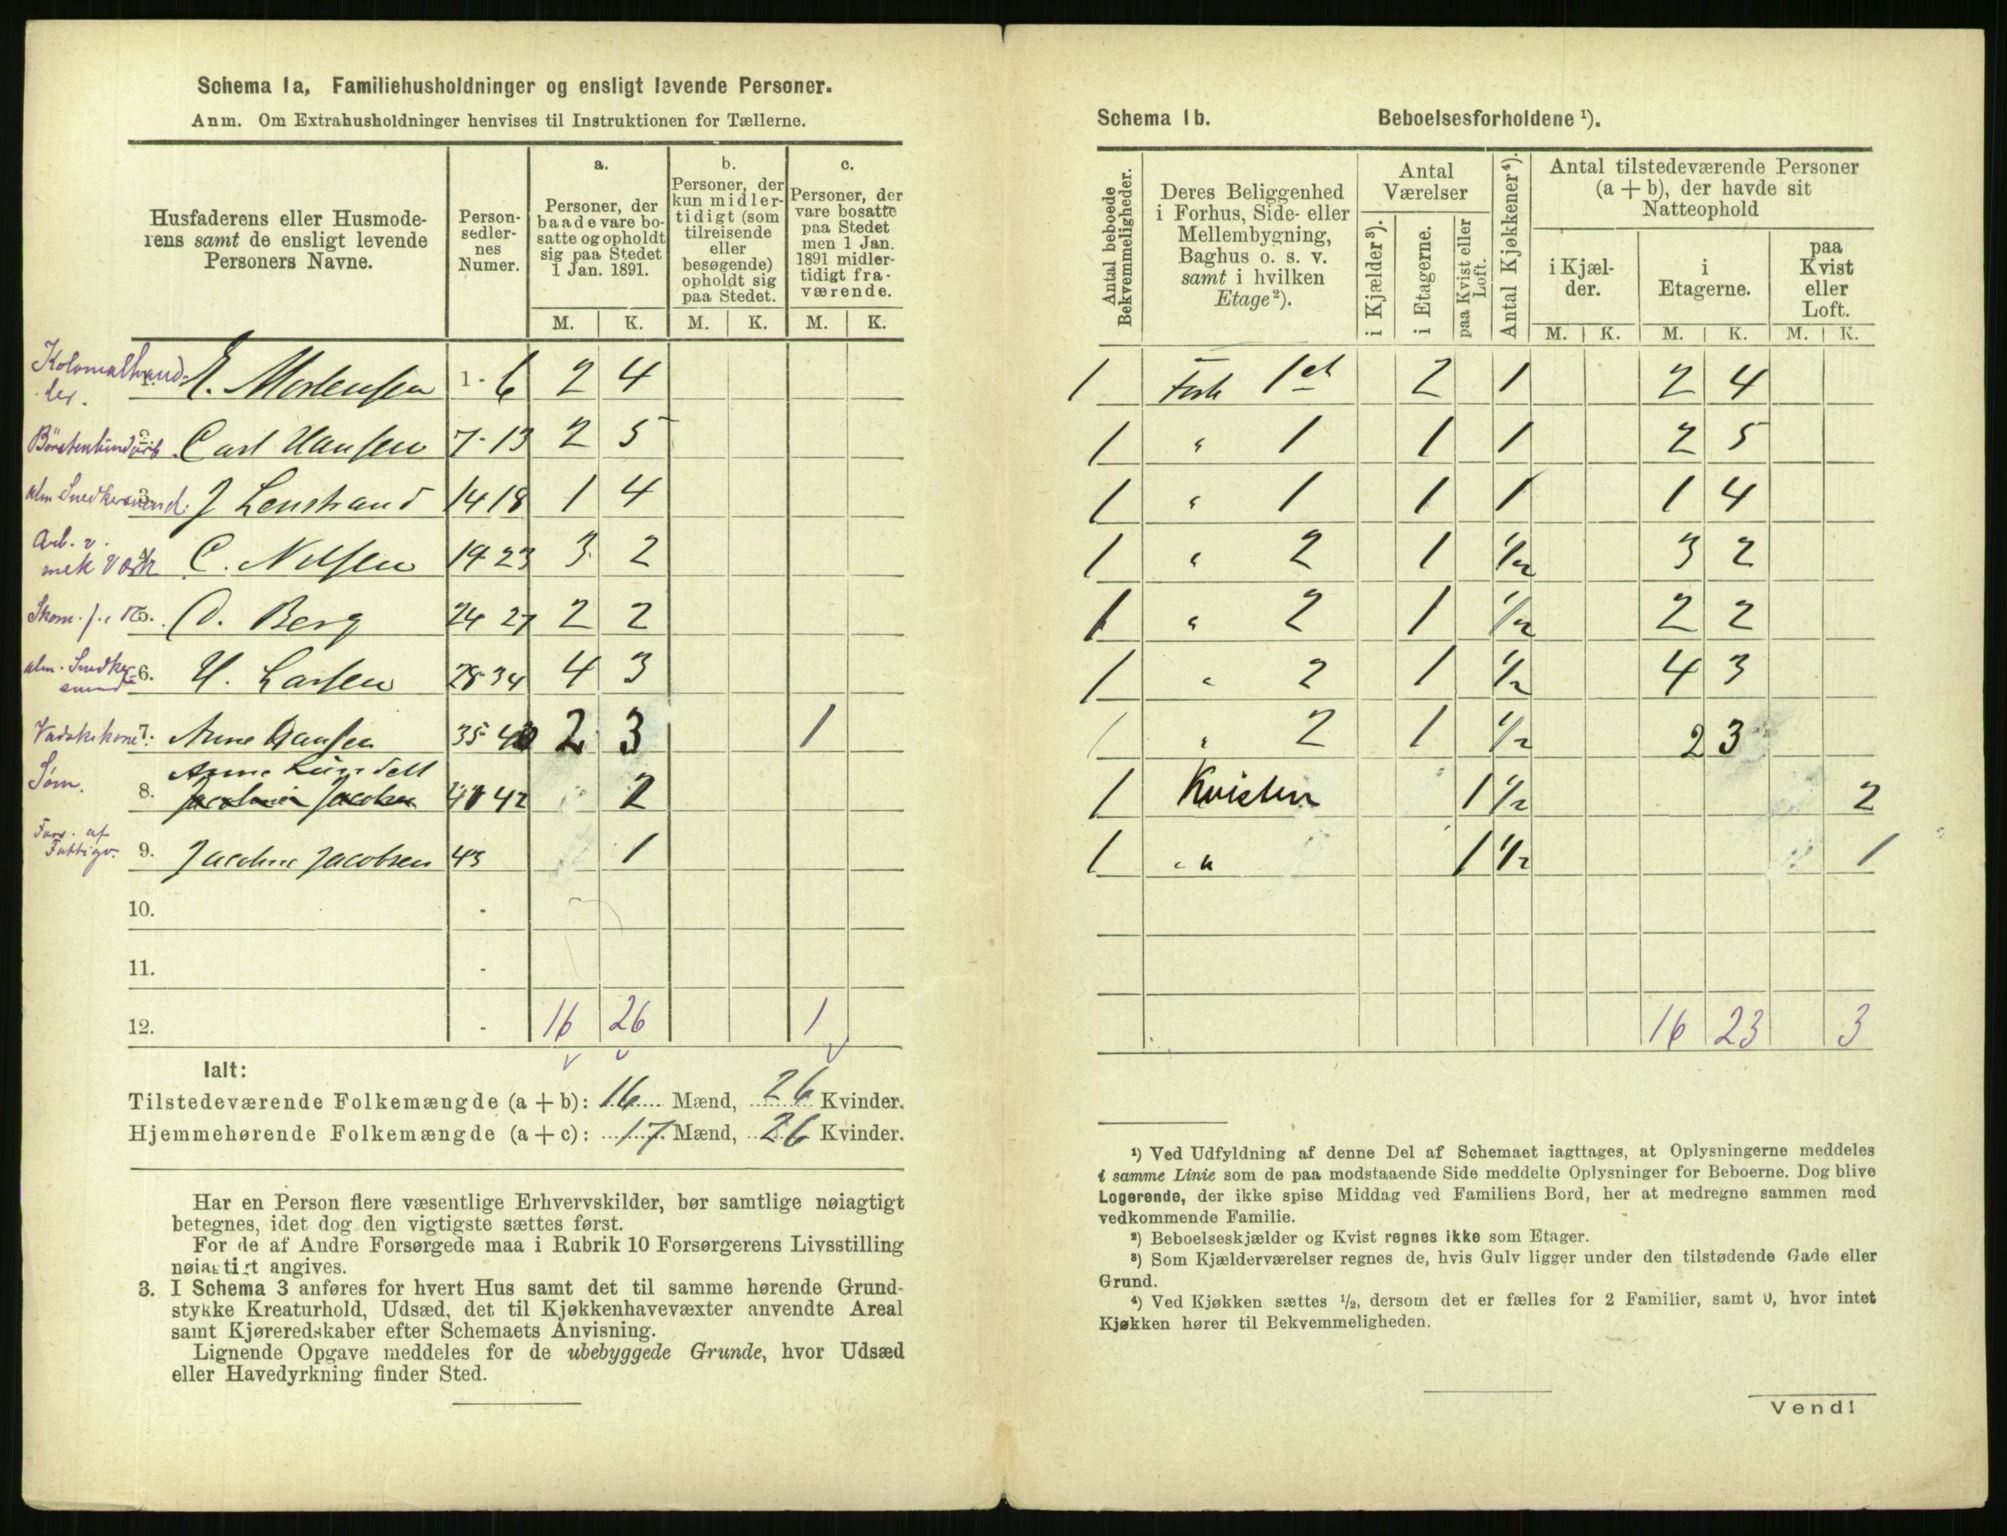 Schema 1a, Familiehusholdninger og ensligt levende Personer.
Anm. Om Extrahusholdninger henvises til Instruktionen for Tællerne.
Husfaderens eller Husmode-
rens samt de ensligt levende
Personers Navne.
Person-
sedler-
nes
Numer.
a.
Personer, der
baade vare bo-
satte og opholdt
sig paa Stedet
1 Jan. 1891.
b.
Personer, der
kun midler-
tidigt (som
tilreisende
eller
besøgende)
opholdt sig
paa Stedet.
c.
Personer, der
vare bosatte
paa Stedet
men 1 Jan.
1891 midler-
tidigt fra-
værende.
M. K. M. K. M. K.
Kolonialhand-
ler. 1. E. Mortensen 1 - 6 2 4
2. Carl Hansen 7 - 13 2 5
alm Snedkersvend. 3. J Lenstrand 14 18 1 4
Arb. v.
mek Værk 4. C. Nilsen 19 - 23 3 2
5. O. Berg 24 27 2 2
alm. Snedker-
svend 6. H. Larsen 28 - 34 4 3
Vadskekone 7. Anne Hansen 35 - 40 2 3 1
Søm. Anne Lundell
8. Jacobine Jacobsen 41 42 2
Fors. af
Fattigv. 9. Jacobine Jacobsen 43 1
10. -
11. -
12. - 16 26 1
Ialt:
Tilstedeværende Folkemængde (a + b): 16 Mænd, 26 Kvinder.
Hjemmehørende Folkemængde (a + c): 17 Mænd, 26 Kvinder.
Har en Person flere væsentlige Erhvervskilder, bør samtlige nøiagtigt
betegnes, idet dog den vigtigste sættes først.
For de af Andre Forsørgede maa i Rubrik 10 Forsørgerens Livsstilling
nøiagtigt angives.
3. I Schema 3 anføres for hvert Hus samt det til samme hørende Grund-
stykke Kreaturhold, Udsæd, det til Kjøkkenhavevæxter anvendte Areal
samt Kjøreredskaber efter Schemaets Anvisning.
Lignende Opgave meddeles for de ubebyggede Grunde, hvor Udsæd
eller Havedyrkning finder Sted.
Schema 1b. Beboelsesforholdene ¹).
Antal beboede
Bekvemmeligheder.
Deres Beliggenhed
i Forhus, Side- eller
Mellembygning,
Baghus o. s. v.
samt i hvilken
Etage ²).
Antal
Værelser
i Kjælder ³).
i Etagerne.
paa Kvist eller
Loft.
Antal Kjøkkener ⁴).
Antal tilstedeværende Personer
(a + b), der havde sit
Natteophold
i Kjæl-
der.
i
Etagerne.
paa
Kvist
eller
Loft.
M. K. M. K. M. K.
1 Forh 1 et 2 1 2 4
1 " 1 1 1 2 5
1 " 1 1 1 1 4
1 " 2 1 1/2 3 2
1 " 2 1 1/2 2 2
1 " 2 1 1/2 4 3
1 " 2 1 1/2 2 3
1 Kvisten 1 1/2 2
1 " 1 1/2 1
16 23 3
¹) Ved Udfyldning af denne Del af Schemaet iagttages, at Oplysningerne meddeles
i samme Linie som de paa modstaaende Side meddelte Oplysninger for Beboerne. Dog blive
Logerende, der ikke spise Middag ved Familiens Bord, her at medregne sammen med
vedkommende Familie.
²) Beboelseskjælder og Kvist regnes ikke som Etager.
³) Som Kjælderværelser regnes de, hvis Gulv ligger under den tilstødende Gade eller
Grund.
⁴) Ved Kjøkken sættes ½, dersom det er fælles for 2 Familier, samt 0, hvor intet
Kjøkken hører til Bekvemmeligheden.
Vend!